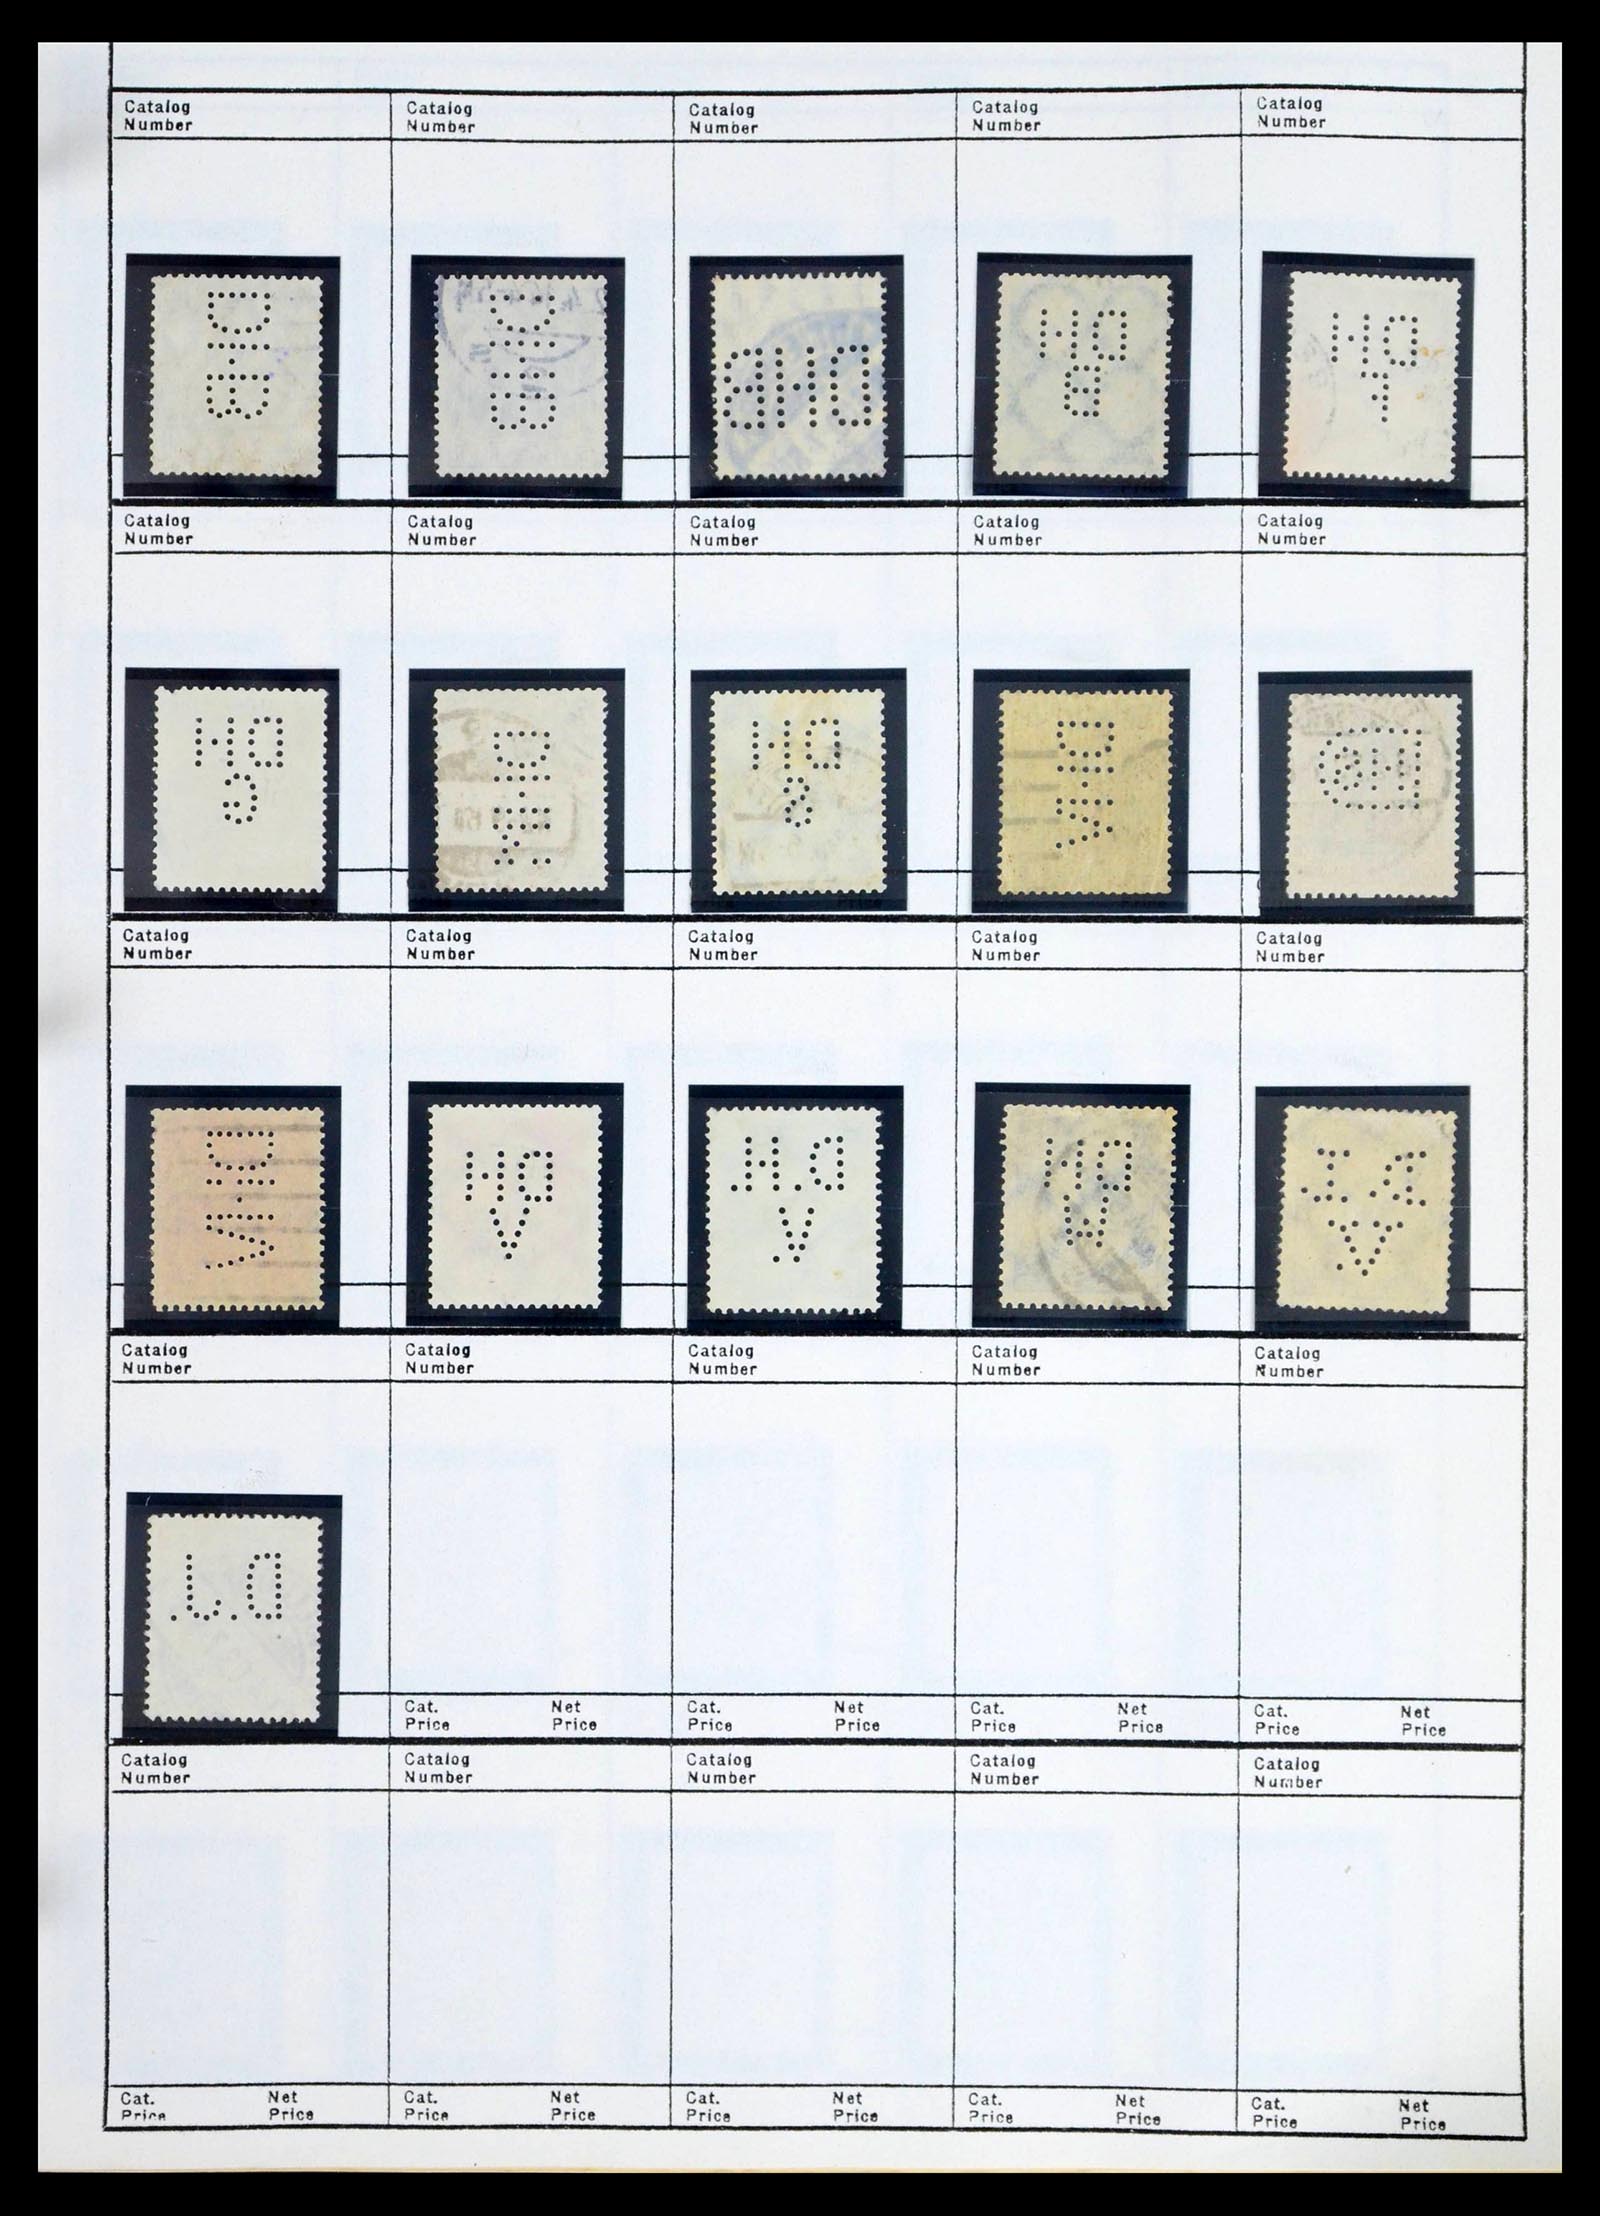 Catalog Catalog Catalog Catalog Catalog
Number Number Number Number Number
DHB DHB DHB DH DH
B T
Catalog Catalog Catalog Catalog Catalog
Number Number Number Number Number
DH DHK DH DHV
G S
Price Price Price Price
Catalog Catalog Catalog Catalog Catalog
Number Number Number Number Number
DHV DH D.H. DH D.I.
V V. W A.
Catalog Catalog Catalog Catalog Catalog
Number Number Number Number Number
D.J.
Cat. Net Cat. Net Cat. Net Cat. Net
Price Price Price Price Price Price Price Price
Catalog Catalog Catalog Catalog Catalog
Number Number Number Number Number
Cat. Net Cat. Net Cat. Net Cat. Net Cat. Net
Price Price Price Price Price Price Price Price Price Price